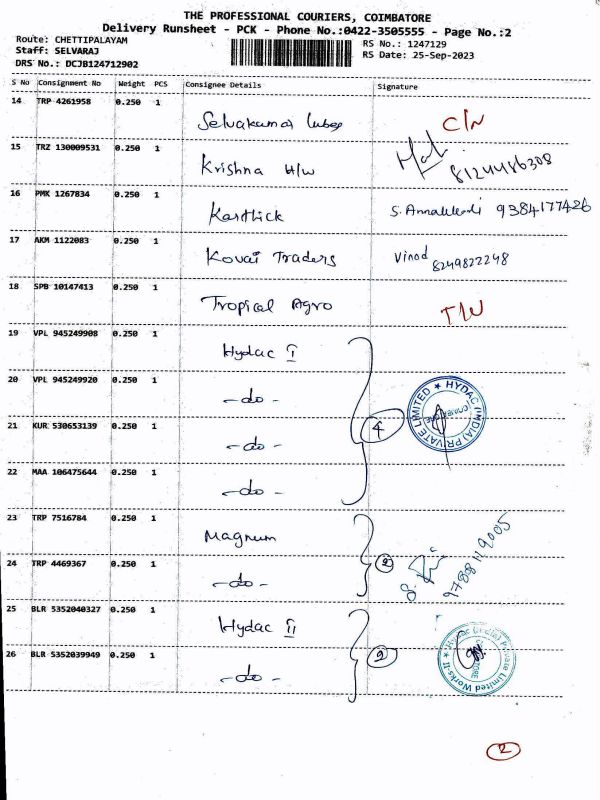 THE PROFESSIONAL COURIERS, COIMBATORE
Delivery Runsheet - PCK - Phone No.:0422-3505555 - Page No.:2
Route: CHETTIPALAYAM
RS No.: 1247129
Staff: SELVARAJ
RS Date: 25-Sep-2023
DRS No.: DCJB124712902
S No Consignment No Weight PCS Consignee Details Signature
14 TRP 4261958 0.250 1
Selvakumar C/N
15 TRZ 130009531 0.250 1
Krishna H/W 8124486308
16 PMK 1267834 0.250 1
Karthick 9384177426
17 AKM 1122083 0.250 1
Kovai Traders Vinod
8249822248
18 SPB 10147413 0.250 1
Tropical Agro T/N
19 VPL 945249908 0.250 1
Hydac I
20 VPL 945249920 0.250 1
-do-
4
HYDAC (INDIA) PRIVATE LIMITED ★
21 KUR 530653139 0.250 1
-do-
22 MAA 106475644 0.250 1
-do-
23 TRP 7516784 0.250 1
Magnum 9788119005
24 TRP 4469367 0.250 1
2
-do-
25 BLR 5352040327 0.250 1
Hydac II
26 BLR 5352039949 0.250 1
2
Hydac (India) Private Limited Works-II ★
STORE
-do-
2